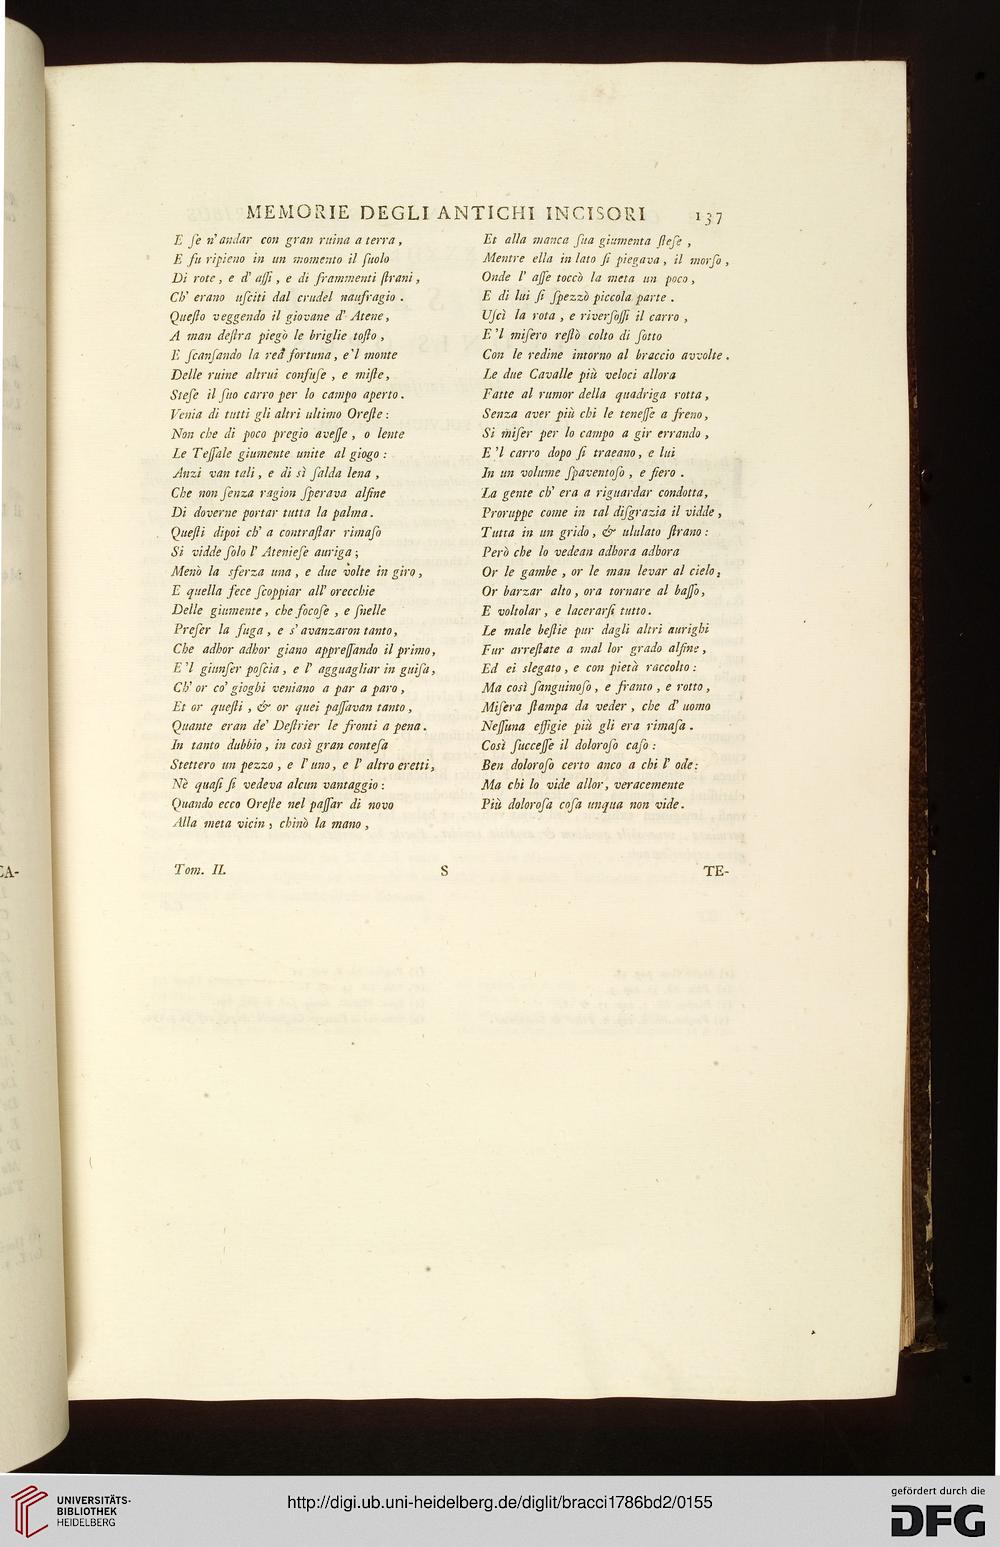 MEMORIE DEGLI ANTICHI INCISORI 137
E ſe n' andar con gran ruina a terra ,
E fu ripieno in un momento il ſuolo
Di rote , e d' aſſi , e di frammenti ſtrani ,
Ch' erano uſciti dal crudel naufragio .
Queſto veggendo il giovane d' Atene ,
A man deſtra piegò le briglie toſto ,
E ſcanſando la rea fortuna , e 'l monte
Delle ruine altrui confuſe , e miſte ,
Steſe il ſuo carro per lo campo aperto .
Venia di tutti gli altri ultimo Oreſte :
Non che di poco pregio aveſſe , o lente
Le Teſſale giumente unite al giogo :
Anzi van tali , e di sì ſalda lena ,
Che non ſenza ragion ſperava alfine
Di doverne portar tutta la palma .
Queſti dipoi ch' a contraſtar rimaſo
Si vidde ſolo l' Atenieſe auriga ;
Menò la sferza una , e due volte in giro ,
E quella fece ſcoppiar all' orecchie
Delle giumente , che focoſe , e ſnelle
Preſer la fuga , e s' avanzaron tanto ,
Che adhor adhor giano appreſſando il primo ,
E 'l giunſer poſcia , e l' agguagliar in guiſa ,
Ch' or co' gioghi veniano a par a paro ,
Et or queſti , & or quei paſſavan tanto ,
Quante eran de' Deſtrier le fronti a pena .
In tanto dubbio , in così gran conteſa
Stettero un pezzo , e l' uno , e l' altro eretti ,
Nè quaſi ſi vedeva alcun vantaggio :
Quando ecco Oreſte nel paſſar di novo
Alla meta vicin , chinò la mano ,
Et alla manca ſua giumenta ſteſe ,
Mentre ella in lato ſi piegava , il morſo ,
Onde l' aſſe toccò la meta un poco ,
E di lui ſi ſpezzò piccola parte .
Uſcì la rota , e riverſoſſi il carro ,
E 'l miſero reſtò colto di ſotto
Con le redine intorno al braccio avvolte .
Le due Cavalle più veloci allora
Fatte al rumor della quadriga rotta ,
Senza aver più chi le teneſſe a freno ,
Si miſer per lo campo a gir errando ,
E 'l carro dopo ſi traeano , e lui
In un volume ſpaventoſo , e fiero .
La gente ch' era a riguardar condotta ,
Proruppe come in tal diſgrazia il vidde ,
Tutta in un grido , & ululato ſtrano :
Però che lo vedean adhora adhora
Or le gambe , or le man levar al cielo ,
Or barzar alto , ora tornare al baſſo ,
E voltolar , e lacerarſi tutto .
Le male beſtie pur dagli altri aurighi
Fur arreſtate a mal lor grado alfine ,
Ed ei slegato , e con pietà raccolto :
Ma così ſanguinoſo , e franto , e rotto ,
Miſera ſtampa da veder , che d' uomo
Neſſuna effigie più gli era rimaſa .
Così ſucceſſe il doloroſo caſo :
Ben doloroſo certo anco a chi l' ode :
Ma chi lo vide allor , veracemente
Più doloroſa coſa unqua non vide .
Tom. II. S TE-
CA-
UNIVERSITÄTS-
BIBLIOTHEK
HEIDELBERG
http://digi.ub.uni-heidelberg.de/diglit/bracci1786bd2/0155
gefördert durch die
DFG